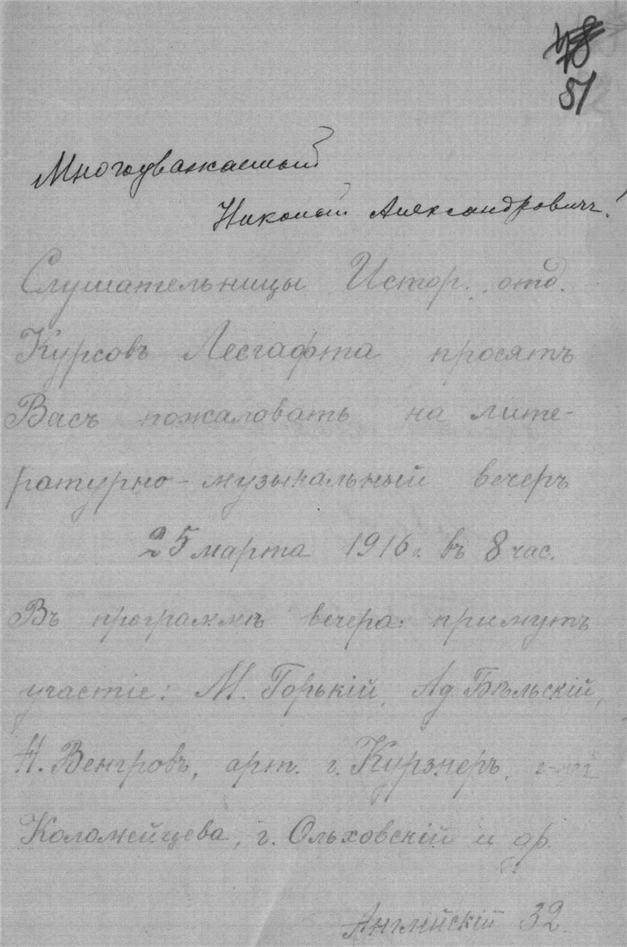 48
51
Многоуважаемый
Николай Александровичъ!
Слушательницы Истор. отд.
Курсовъ Лесгафта просятъ
Васъ пожаловать на лите-
ратурно-музыкальный вечеръ
25 марта 1916 г. въ 8 час.
Въ программѣ вечера примутъ
участіе: М. Горькій, Ад. Бѣльскій,
Н. Венгровъ, арт. г. Курзнеръ, г-жи
Коломейцева, г. Ольховскій и др.
Англійскій 32.